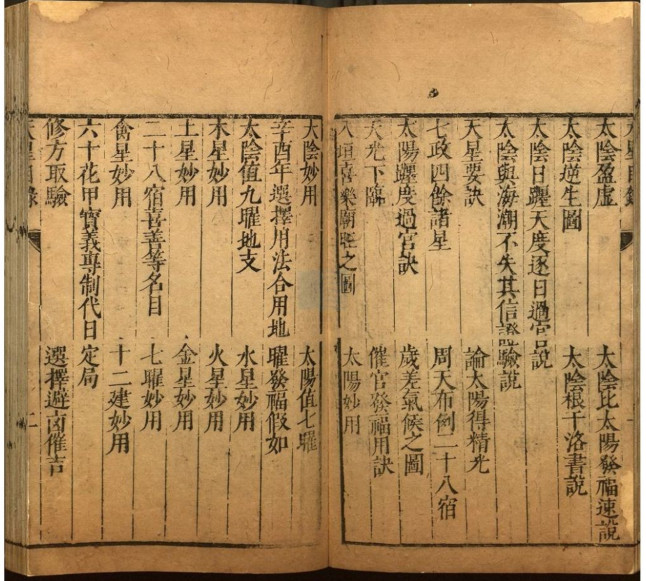 天星目錄
太陰盈虛 太陰比太陽發福速說
太陰逆生圖 太陰根于洛書說
太陰日躔天度逐日過宮說
太陰與海潮不失其信證驗說
天星要訣 論太陽得精光
七政四餘諸星 周天布列二十八宿
太陽躔度過宮訣 歲差氣候之圖
天光下臨 催官發福用訣
八垣喜樂廟旺之圖 太陽妙用
太陰妙用 太陽值七曜
辛酉年選擇用法合用地曜發福假如
太陰值九曜地支 水星妙用
木星妙用 火星妙用
土星妙用 金星妙用
二十八宿喜善等名目 七曜妙用
禽星妙用 十二建妙用
六十花甲寶義專制代日定局
修方取驗 選擇避凶催吉
天星目錄 二